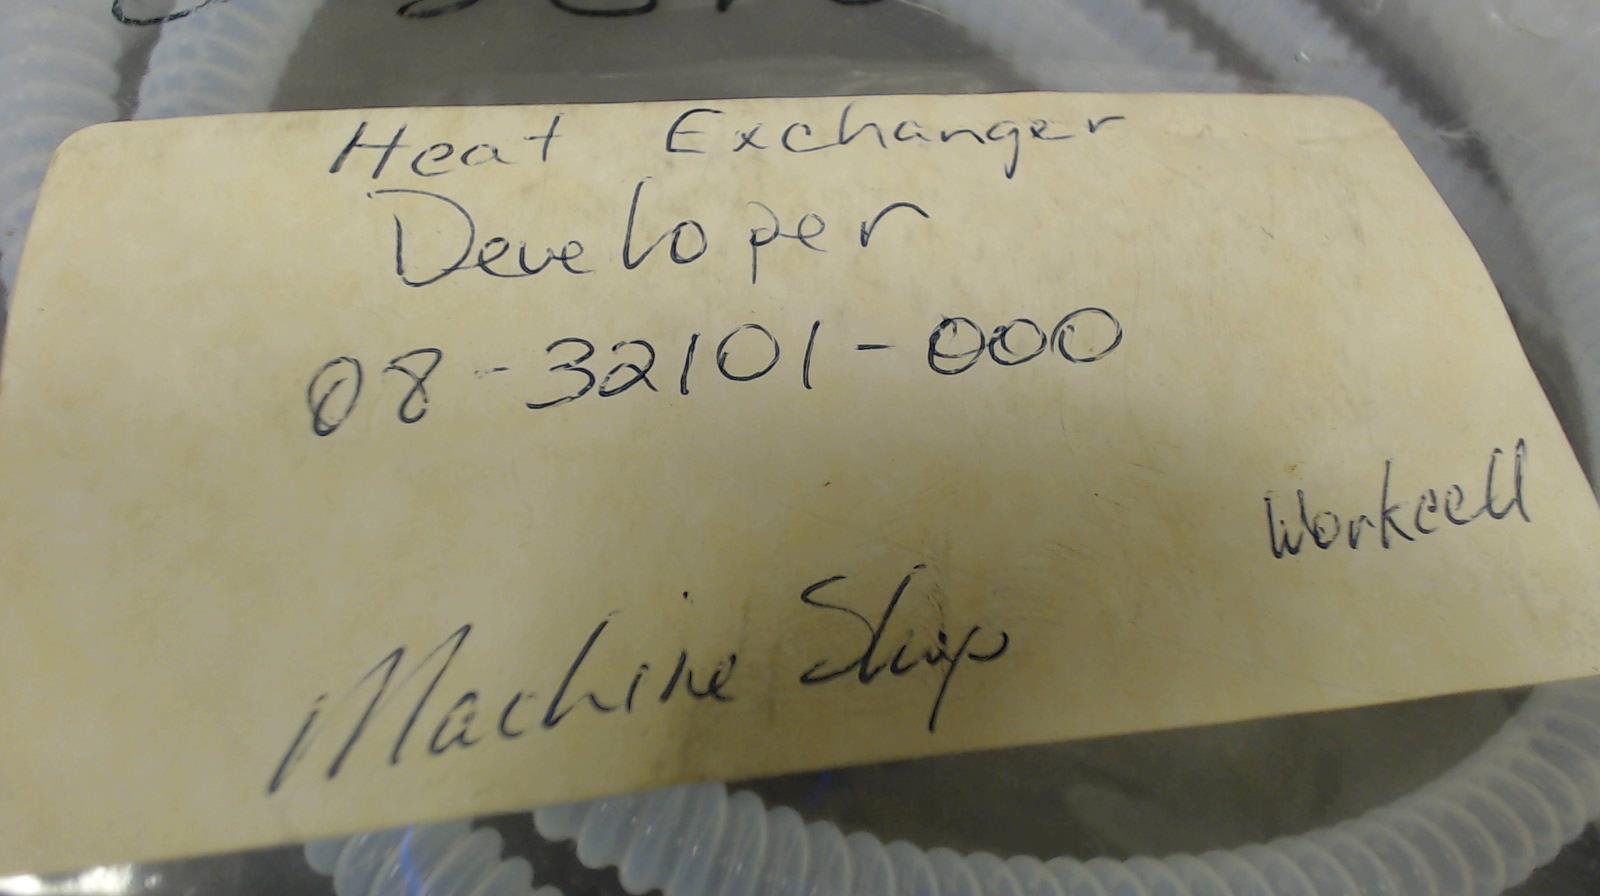 Heat Exchanger
Developer
08-32101-000
Workcell
Machine Shop